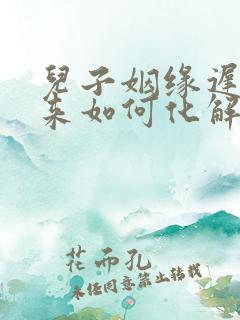 兒子姻缘遅
来如何化解
花而孔
未经同意禁止转载